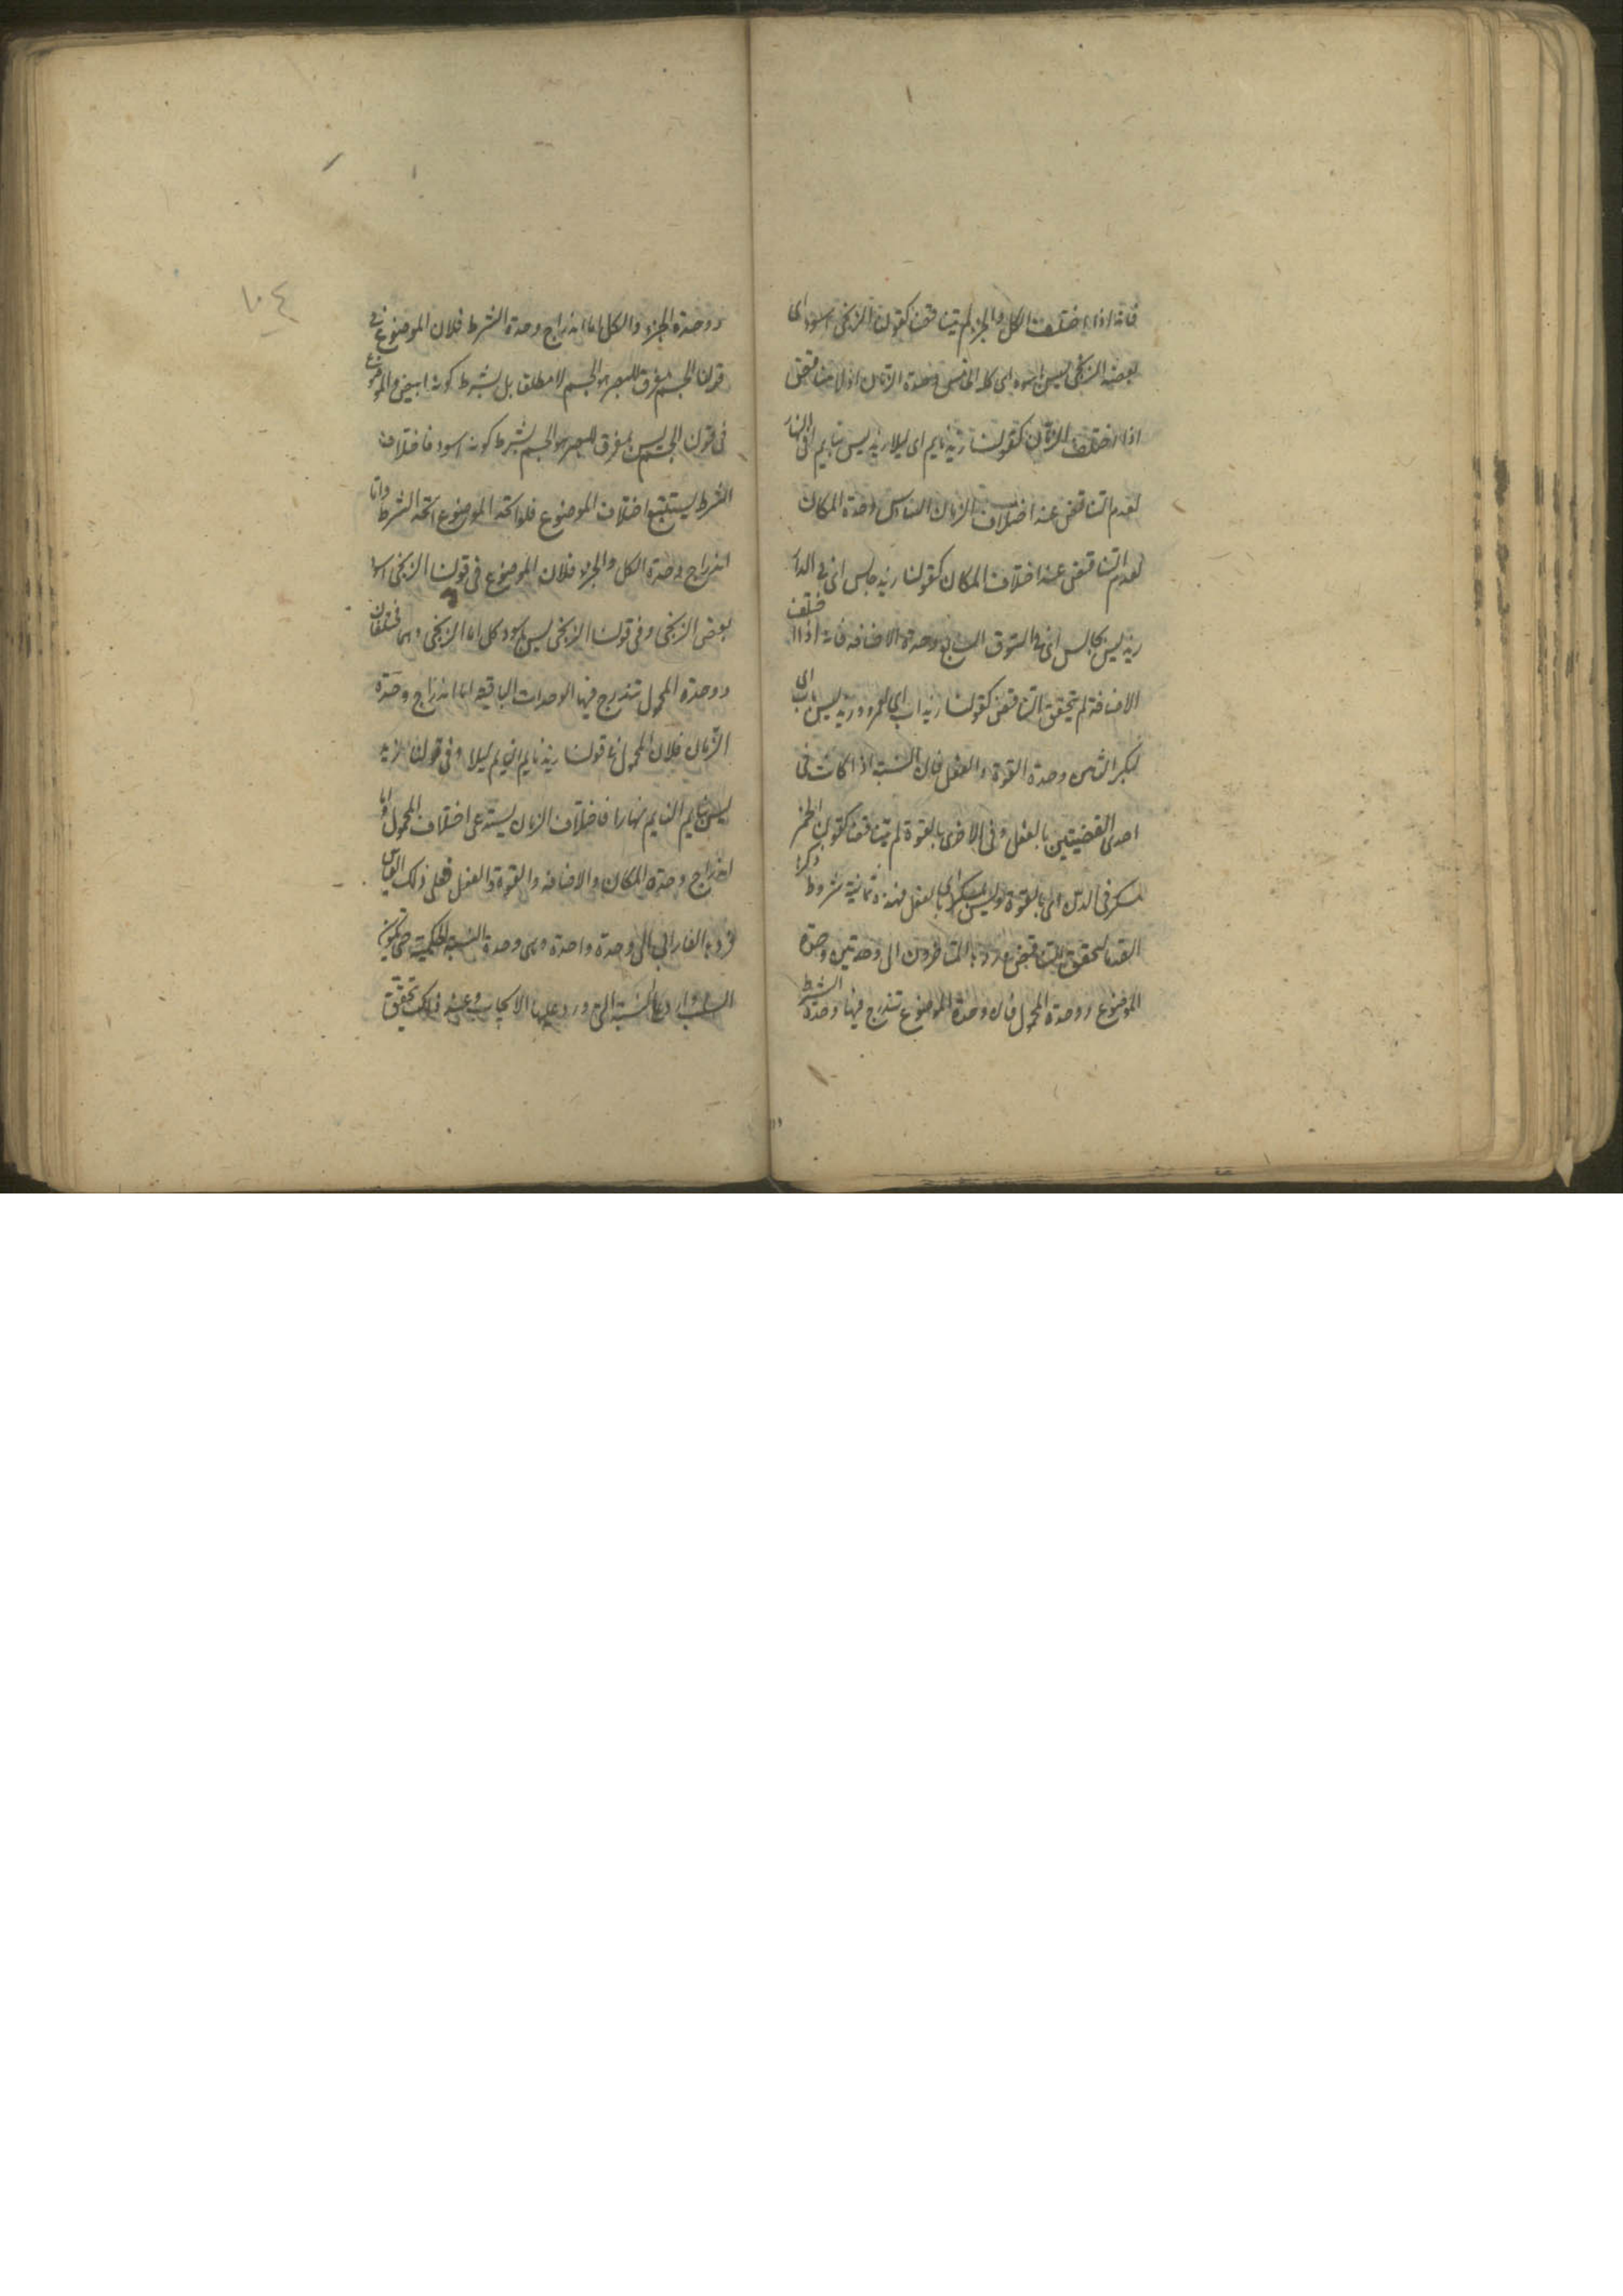 فانه اذا اختلف الكل والجزء لم يتناقضا كقولنا الزنجى اسود اى
بعضه الزنجى ليس باسود اى كله الخامس وحدة الزمان اذ لا تناقض
اذا اختلف الزمان كقولنا زيد نايم اى ليلا زيد ليس بنايم اى فى النهار
لعدم التناقض عند اختلاف الزمان السادس وحدة المكان
لعدم التناقض عند اختلاف المكان كقولنا زيد جالس اى فى الدار
زيد ليس بجالس اى فى السوق السابع وحدة الاضافه فانه اذا اختلف
الاضافة لم يتحقق التناقض كقولنا زيد اب اى لعمرو وزيد ليس باب اى
لبكر الثامن وحدة القوة والفعل فان النسبة اذا كانت فى
احدى القضيتين بالفعل وفى الاخرى بالقوة لم يتناقضا كقولنا الخمر
مسكر فى الدن اى بالقوة وليس بمسكر اى بالفعل فهذه ثمانية شروط ذكرها
القدما لتحقق التناقض وردها المتاخرون الى وحدتين وحدة
الموضوع ووحدة المحمول فان وحدة الموضوع تندرج فيها وحدة الشرط
ووحدة الجزء والكل اما اندراج وحدة الشرط فلان الموضوع فى
قولنا الجسم مفرق للبصر هو الجسم لا مطلقا بل بشرط كونه ابيض والموضوع
فى قولنا الجسم ليس بمفرق للبصر هو الجسم بشرط كونه اسود فاختلاف
الشرط يستتبع اختلاف الموضوع فلو اتحد الموضوع اتحد الشرط واما
اندراج وحدة الكل والجزء فلان الموضوع فى قولنا الزنجى اسود
بعض الزنجى وفى قولنا الزنجى ليس باسود كل الزنجى وهما مختلفان
ووحدة المحمول تندرج فيها الوحدات الباقيه اما اندراج وحدة
الزمان فلان المحمول فى قولنا زيد نايم النايم ليلا وفى قولنا زيد
ليس بنايم النايم نهارا فاختلاف الزمان يستدعى اختلاف المحمول واما
اندراج وحدة المكان والاضافه والقوة والفعل فعلى ذلك القياس
وردها الفارابى الى وحدة واحدة وهى وحدة النسبة الحكمية حتى يكون
السلب واردا على النسبة التى ورد عليها الايجاب وعند ذلك يتحقق
١٠٤